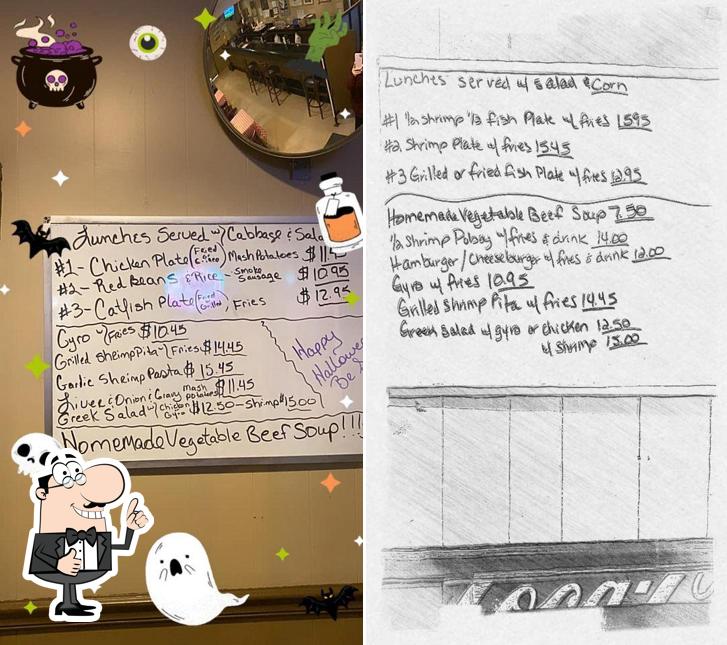 Lunches Served w/ Cabbage & Sala
#1- Chicken Plate (Fried Mash Potatoes $11.
#2- Red Beans & Rice - Smoke Sausage $10.95
#3- Catfish Plate (Fried Grilled), Fries $12.95
Gyro w/ Fries $10.45
Grilled Shrimp Pita w/ Fries $14.45
Garlic Shrimp Pasta $15.45
Liver & Onion & Gravy Mash potatoes $11.45
Greek Salad w/ Chicken Gyro $12.50 - Shrimp $15.00
Happy
Hallowe
Be
Homemade Vegetable Beef Soup!!!
Lunches served w/ salad & Corn
#1 1/2 shrimp 1/2 fish Plate w/ fries 15.95
#2 Shrimp Plate w/ fries 15.45
#3 Grilled or fried fish Plate w/ fries 12.95
Homemade Vegetable Beef Soup 7.50
1/2 Shrimp Poboy w/ fries & drink 14.00
Hamburger/Cheeseburger w/ fries & drink 12.00
Gyro w/ fries 10.95
Grilled Shrimp Pita w/ fries 14.45
Greek salad w/ gyro or chicken 12.50
w/ Shrimp 15.00